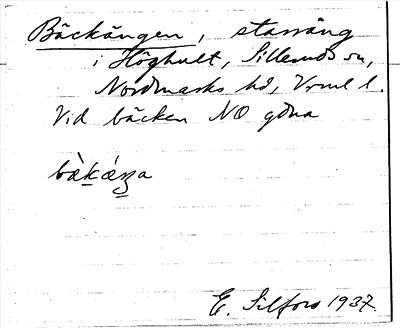 Bäckängen, starräng
i Höghult, Silleruds sn,
Nordmarks hd, Vrml l.
Vid bäcken NO gdna
bàkæ̀ŋa
E. Silfors 1937.